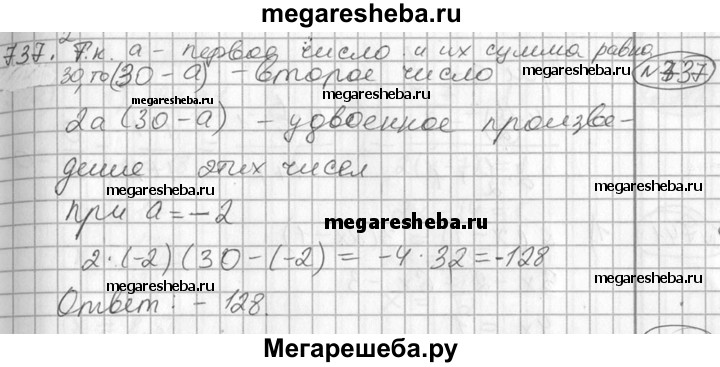 megaresheba.ru
737. Т.к. а - первое число и их сумма равна
30, то (30 - а) - второе число №737
megaresheba.ru megaresheba.ru
2а (30 - а) - удвоенное произве-
megaresheba.ru megaresheba.ru
дение этих чисел
megaresheba.ru megaresheba.ru
при а = - 2
megaresheba.ru
2 · (-2) (30 - (-2) = -4 · 32 = -128
megaresheba.ru megaresheba.ru
Ответ: - 128.
Мегарешеба.ру